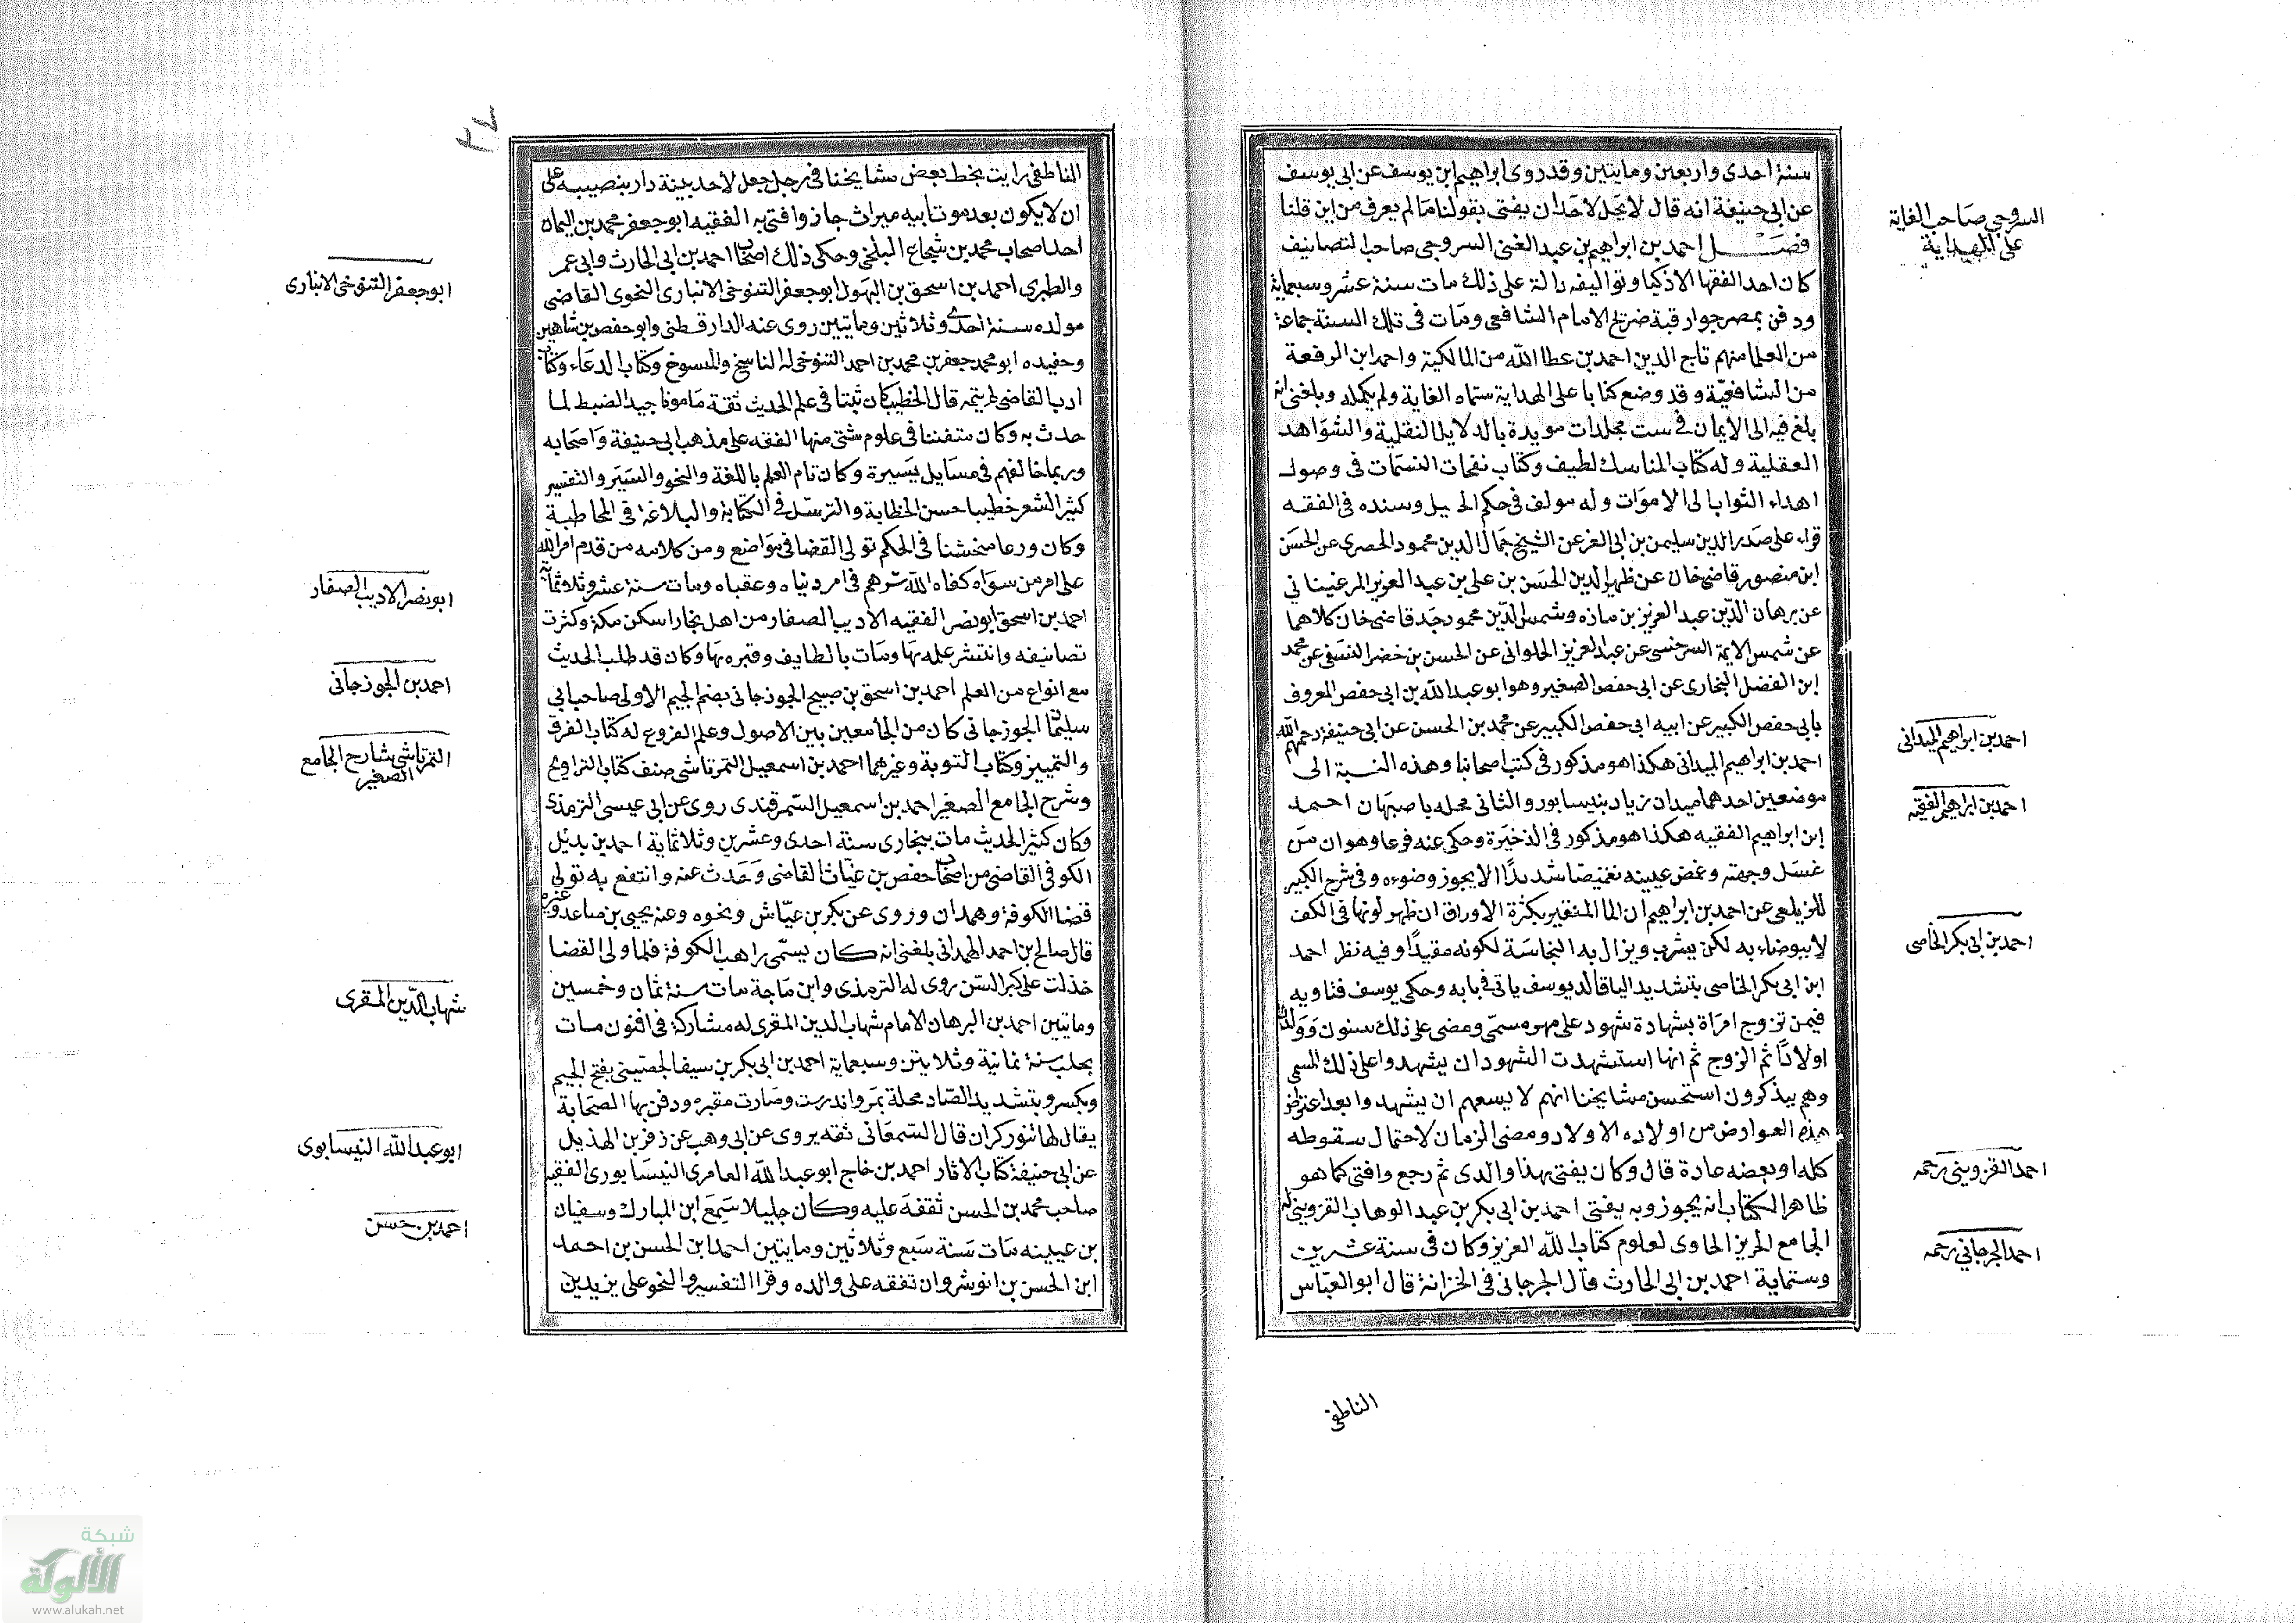 السروجي صاحب الغاية
على الهداية
سنة احدى واربعين ومايتين وقد روى ابراهيم ابن يوسف عن ابي يوسف
عن ابي حنيفة انه قال لا يحل لاحد ان يفتي بقولنا مالم يعرف من اين قلنا
فصل احمد بن ابراهيم بن عبد الغني السروجي صاحب التصانيف
كان احد الفقها الاذكيا وتواليفه دالة على ذلك مات سنة عشر وسبعماية
ودفن بمصر جوار قبة ضريح الامام الشافعي ومات في تلك السنة جماعة
من العلما منهم تاج الدين احمد بن عطا الله من المالكية واحمد ابن الرفعة
من الشافعية وقد وضع كتابا على الهداية سماه الغاية ولم يكمله وبلغني انه
بلغ فيه الى الايمان في ست مجلدات مويدة بالدلايل النقلية والشواهد
العقلية وله كتاب المناسك لطيف وكتاب نفحات النسمات في وصول
اهداء الثواب الى الاموات وله مولف في حكم الخيل وسنده في الفقه
قراء على صدر الدين سليمن بن ابي العز عن الشيخ جمال الدين محمود الحصري عن الحسن
ابن منصور قاضي خان عن ظهير الدين الحسن بن علي بن عبد العزيز المرغيناني
عن برهان الدين عبد العزيز بن مازه وشمس الدين محمود جد قاضي خان كلاهما
عن شمس الايمة السرخسي عن عبد العزيز الحلواني عن الحسن بن خضر النسفي عن محمد
ابن الفضل البخاري عن ابي حفص الصغير وهو ابو عبد الله بن ابي حفص المعروف
بابي حفص الكبير عن ابيه ابي حفص الكبير عن محمد بن الحسن عن ابي حنيفة رحمهم الله
احمد بن ابراهيم الميداني هكذا هو مذكور في كتب اصحابنا وهذه النسبة الى
موضعين احدهما ميدان زياد بنيسابور والثاني محله باصبهان احمد
ابن ابراهيم الفقيه هكذا هو مذكور في الذخيرة وحكى عنه فرعا وهو ان من
غسل وجهته وغمض عيينه تغميضا شديدًا الا يجوز وضوءه وفي شرح الكبير
للزيلعي عن احمد بن ابراهيم ان الما المتغير بكثرة الاوراق ان ظهر لونها في الكف
لا يتوضاء به لكن يشرب ويزال به النجاسة لكونه مقيدًا وفيه نظر احمد
ابن ابي بكر الخاصي بتشديد اليا قال يوسف ياتي في بابه وحكى يوسف فتاويه
فيمن تزوج امراة بشهادة شهود على مهر مسمى ومضى على ذلك سنون وولدت
اولادًا ثم الزوج ثم انها استشهدت الشهود ان يشهدوا على ذلك المسمى
وهم يذكرون استحسن مشايخنا انهم لا يسعهم ان يشهدوا بعد اعتراض
هذه العوارض من اولاده الاولاد ومضى الزمان لاحتمال سقوطه
كله او بعضه عادة قال وكان يفتي بهذا والدي ثم رجع وافتى كما هو
ظاهر الكتاب انه يجوز وبه يفتي احمد بن ابي بكر بن عبد الوهاب القزويني له
الجامع الحريز الحاوي لعلوم كتاب الله العزيز وكان في سنة عشرين
وستماية احمد بن ابي الحارث قال الجرجاني في الخزانة قال ابو العباس
احمد بن ابراهيم الميداني
احمد بن ابراهيم الفقيه
احمد بن ابي بكر الخاصي
احمد القزويني رحمه
احمد الجرجاني رحمه
الناطفي
٢٧
الناطفي رايت بخط بعض مشايخنا في رجل جعل لاحد بينة دار بنصيبه على
ان لا يكون بعد موت ابيه ميراث جاز وافتى به الفقيه ابو جعفر محمد بن اليمان
احد اصحاب محمد بن شجاع البلخي وحكى ذلك اصحاب احمد بن ابي الحارث وابي عمر
والطبري احمد بن اسحق بن البهول ابو جعفر التنوخي الانباري النحوي القاضي
مولده سنة احدى وثلاثين ومايتين روى عنه الدار قطني وابو حفص بن شاهين
وحفيده ابو محمد جعفر بن محمد بن احمد التنوخي له الناسخ والمنسوخ وكتاب الدعاء وكتاب
ادب القاضي لم يتمه قال الخطيب كان ثبتا في علم الحديث ثقة مامونا جيد الضبط لما
حدث به وكان متفننا في علوم شتى منها الفقه على مذهب ابي حنيفة واصحابه
وربما خالفهم في مسايل يسيرة وكان تام العلم باللغة والنحو والسير والتفسير
كثير الشعر خطيبا حسن الخطابة والترسل في الكتابة والبلاغة في المخاطبة
وكان ورعا متخشنا في الحكم تولى القضا في مواضع ومن كلامه من قدم امر الله
على امر من سواه كفاه الله شرهم في امر دنياه وعقباه ومات سنة عشر وثلاثماية
احمد بن اسحق ابو نصر الفقيه الاديب الصفار من اهل بخارا سكن مكة وكثرت
تصانيفه وانتشر علمه بها ومات بالطايف وقبره بها وكان قد طلب الحديث
مع انواع من العلم احمد بن اسحق بن صبيح الجوزجاني بضم الجيم الاولى صاحب ابي
سليمان الجوزجاني كان من الجامعين بين الاصول وعلم الفروع له كتاب الفرق
والتمييز وكتاب التوبة وغيرهما احمد بن اسمعيل التمرتاشي صنف كتاب التراويح
وشرح الجامع الصغير احمد بن اسمعيل السمرقندي روى عن ابي عيسى الترمذي
وكان كثير الحديث مات ببخارى سنة احدى وعشرين وثلاثماية احمد بن بديل
الكوفي القاضي من اصحاب حفص بن غياث القاضي وحدث عنه وانتفع به تولى
قضا الكوفة وهمدان وروى عن بكر بن عياش ونحوه وعنه يحيى بن صاعد وغيره
قال صالح بن احمد الهمداني بلغني انه كان يسمى راهب الكوفة فلما ولي القضا
خذلت على كبر السن روى له الترمذي وابن ماجة مات سنة ثمان وخمسين
ومايتين احمد بن البرهان الامام شهاب الدين المقري له مشاركة في افنون مات
بحلب سنة ثمانية وثلاثين وسبعماية احمد بن ابي بكر بن سيف الجصيني بفتح الجيم
وبكسر وبتشديد الصاد محلة بمرو اندرست وصارت مقبره ودفن بها الصحابة
يقال لها تنوركران قال السمعاني ثقه يروي عن ابي وهب عن زفر بن الهذيل
عن ابي حنيفة كتاب الاثار احمد بن حاج ابو عبد الله العامري النيسابوري الفقيه
صاحب محمد بن الحسن تفقه عليه وكان جليلا سمع ابن المبارك وسفيان
بن عيينه مات سنة سبع وثلاثين ومايتين احمد ابن الحسن بن احمد
ابن الحسن بن انوشروان تفقه على والده وقرا التفسير والنحو على يزيد بن
ابو جعفر التنوخي الانباري
ابو نصر الاديب الصفار
احمد بن الجوزجاني
التمرتاشي شارح الجامع
الصغير
شهاب الدين المقري
ابو عبد الله النيسابوي
احمد بن حسن
شبكة
الألوكة
www.alukah.net